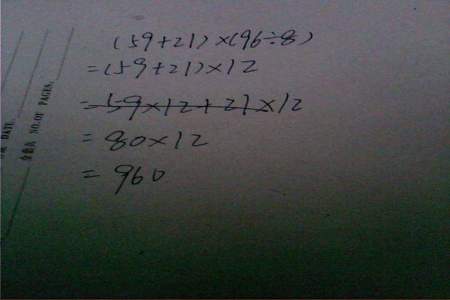 (59+21)×(96÷8)
=(59+21)×12
=59×12+21×12
=80×12
=960
DATE.
NO.OF PAGES.